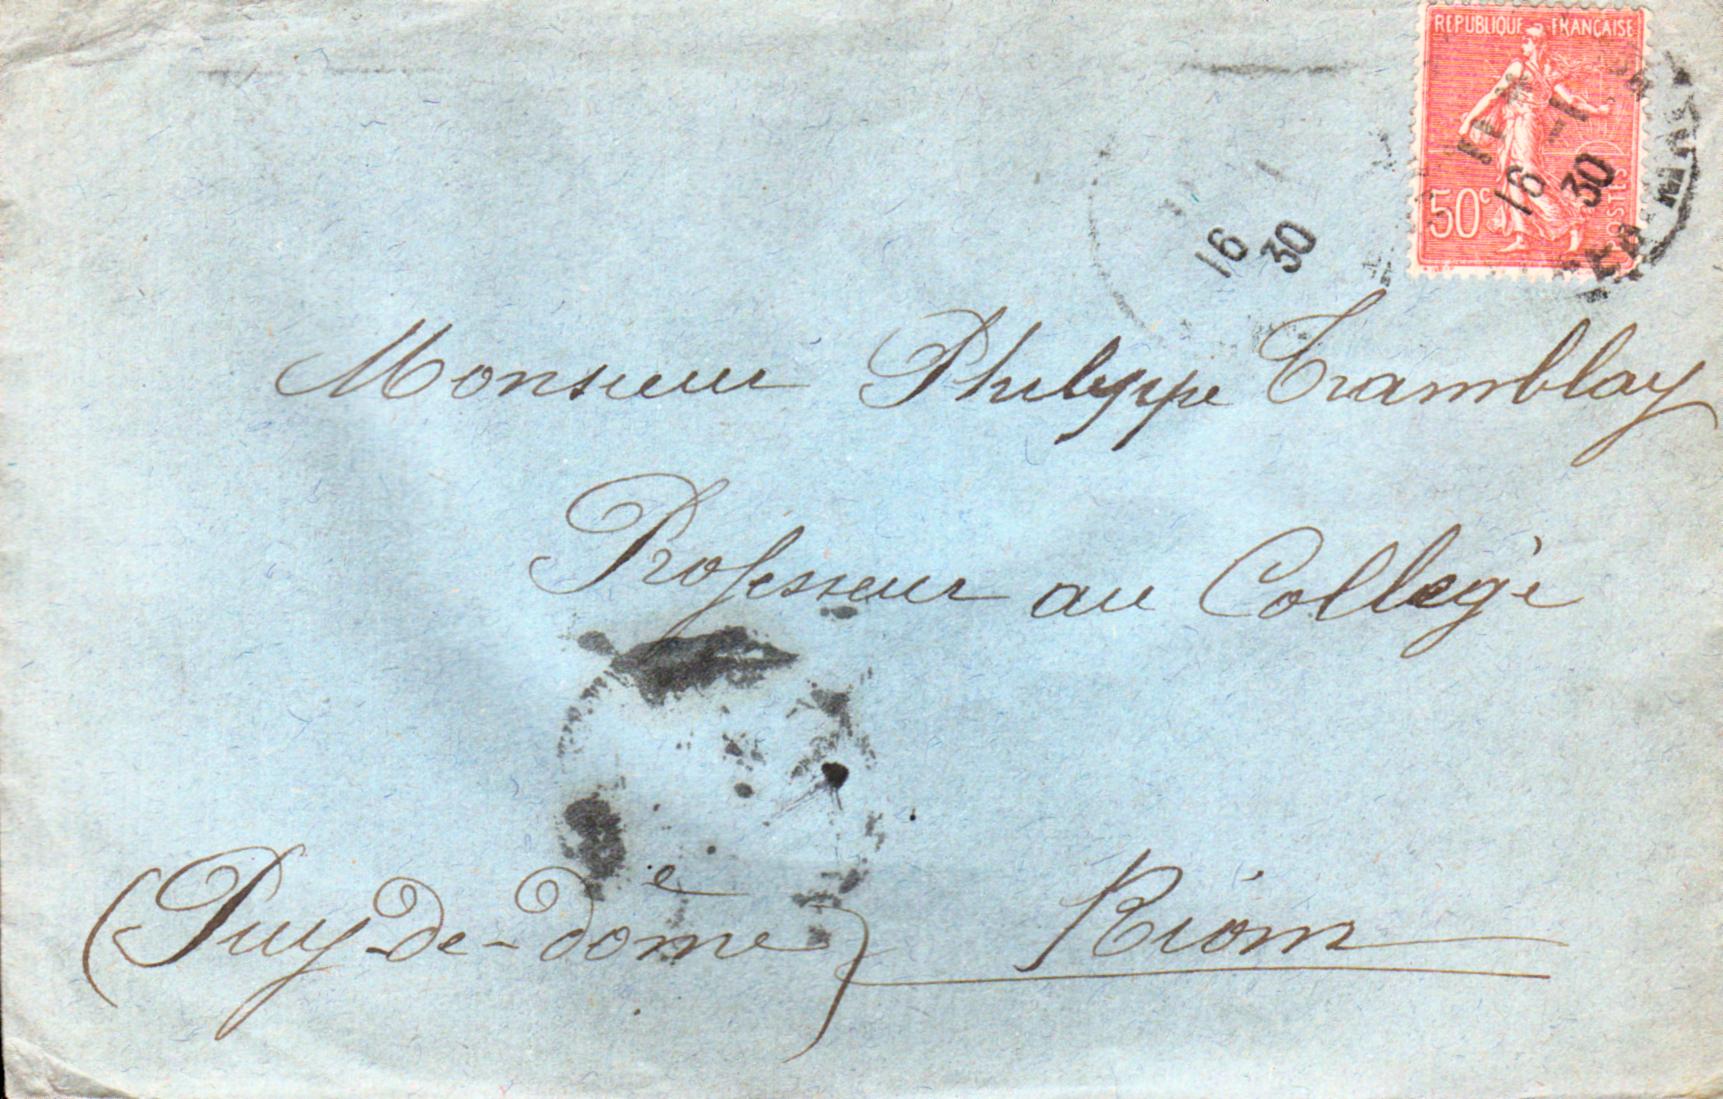 REPUBLIQUE FRANÇAISE
50c
POSTES
16 -1
30
16 1
30
Monsieur Philippe Tramblay
Professeur au Collège
(Puy-de-dôme) Riom